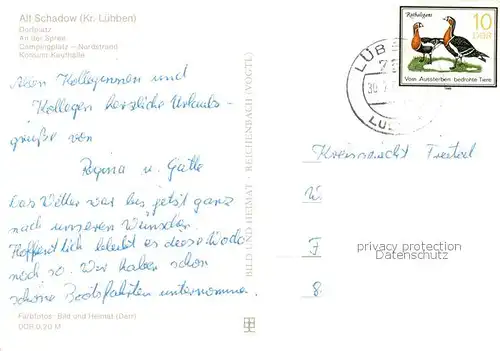 Alt Schadow (Kr. Lübben)
Dorfplatz
An der Spree
Campingplatz – Nordstrand
Konsum-Kaufhalle
Allen Kolleginnen und
Kollegen herzliche Urlaubs-
grüße von
Regina u. Gatte
Das Wetter war bis jetzt ganz
nach unseren Wünschen.
Hoffentlich bleibt es diese Woche
noch so. Wir haben schon
schöne Bootsfahrten unternommen.
Farbfotos: Bild und Heimat
DDR 0,20 M
BILD UND HEIMAT · REICHENBACH (VOGTL)
Rothalsgans
10
DDR
Vom Aussterben bedrohte Tiere
LÜB
30.
Kreisgericht Freital
F
8
privacy protection
Datenschutz